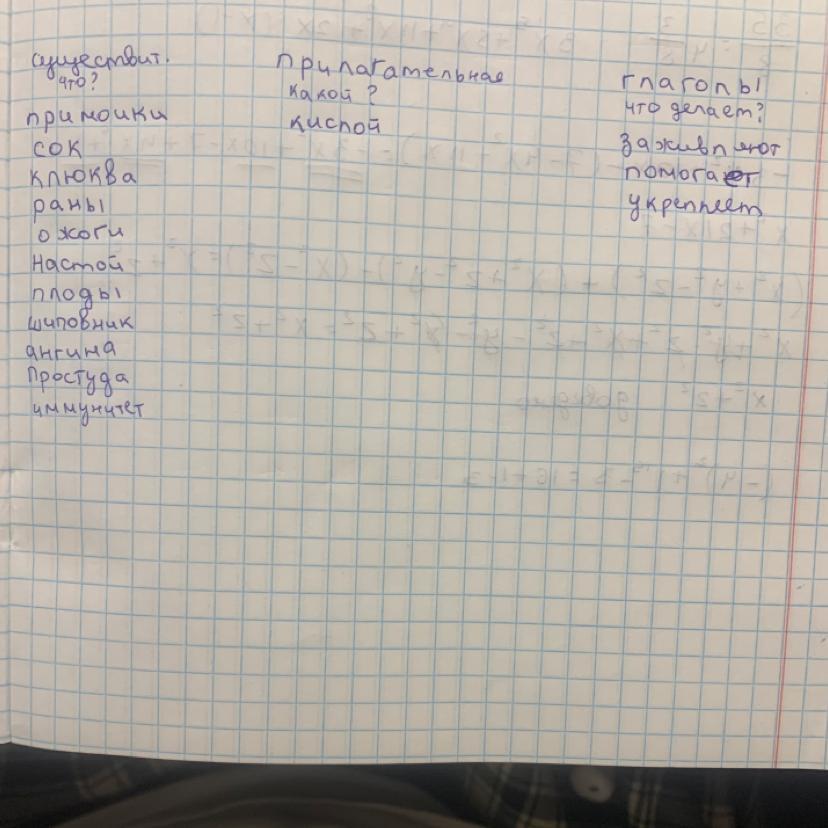 существит.
что?
примочки
сок
клюква
раны
ожоги
настой
плоды
шиповник
ангина
простуда
иммунитет
прилагательная
какой?
кислой
глаголы
что делает?
заживляют
помогает
укрепляет